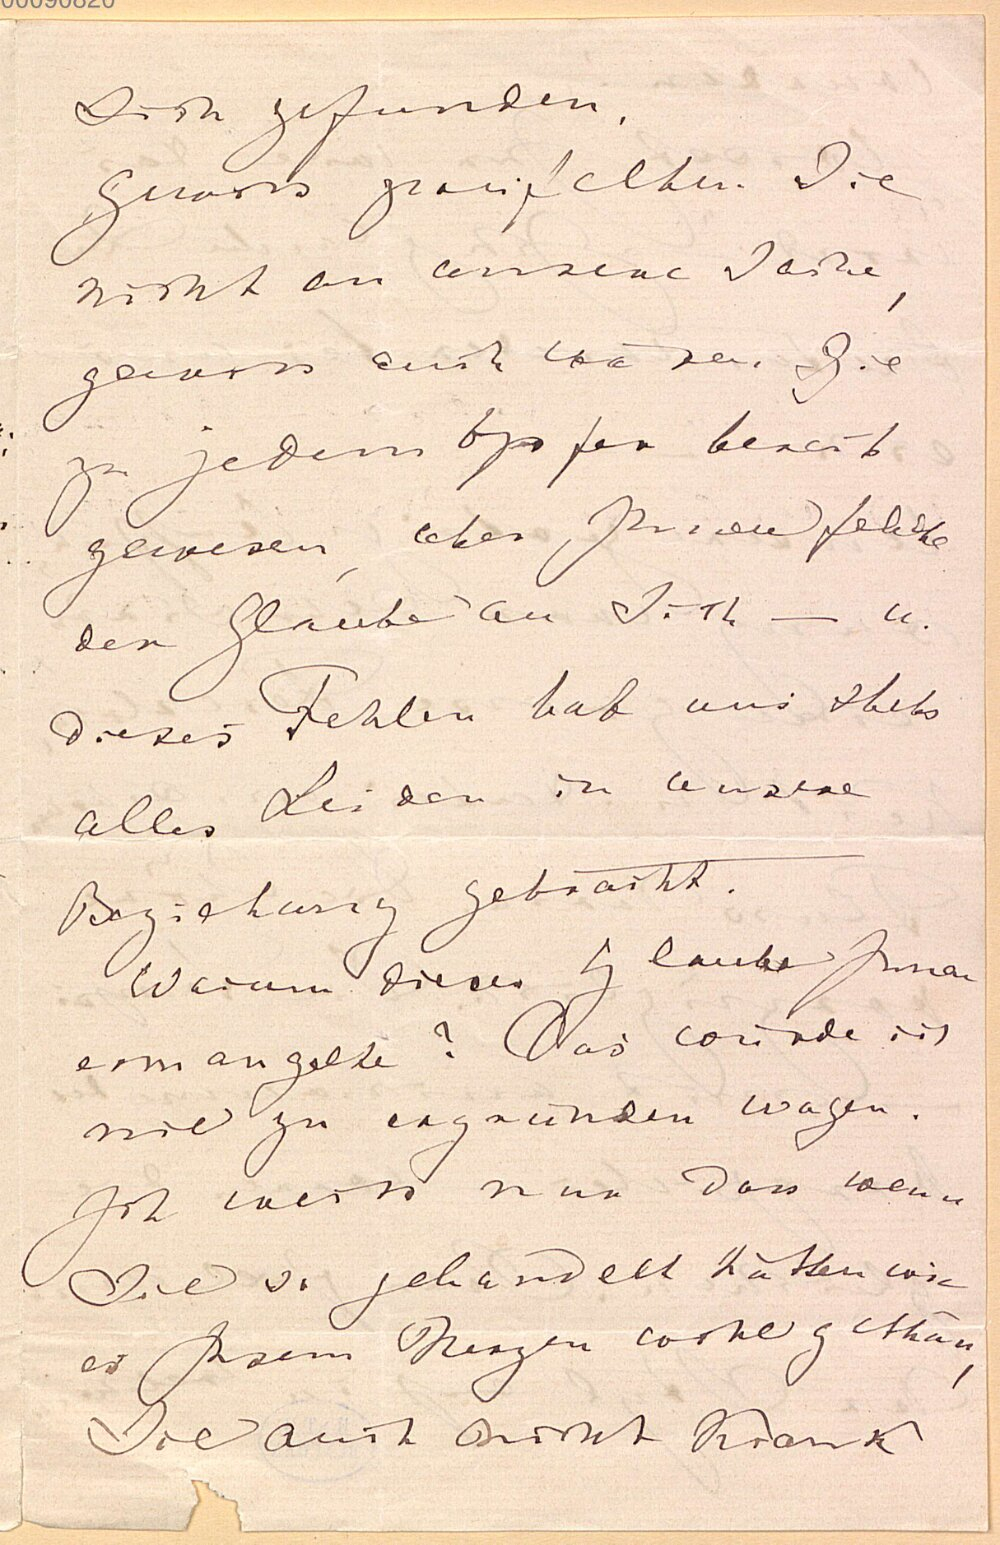 00090820
Sich gefunden.
Gewiss zweifelten Sie
nicht an unsere Sache,
gewiss auch wären Sie
zu jedem Opfer bereit
gewesen, aber Ihnen fehlte
der Glaube an Sich — u.
dieses Fehlen hat uns stets
alles Leiden in unsere
Beziehung gebracht.
Warum dieser Glaube Ihnen
ermangelte? Das würde ich
nie zu ergründen wagen.
Ich weiss nur dass wenn
Sie so gehandelt hätten wie
es Ihrem Herzen wohl gethan,
Sie auch nicht krank